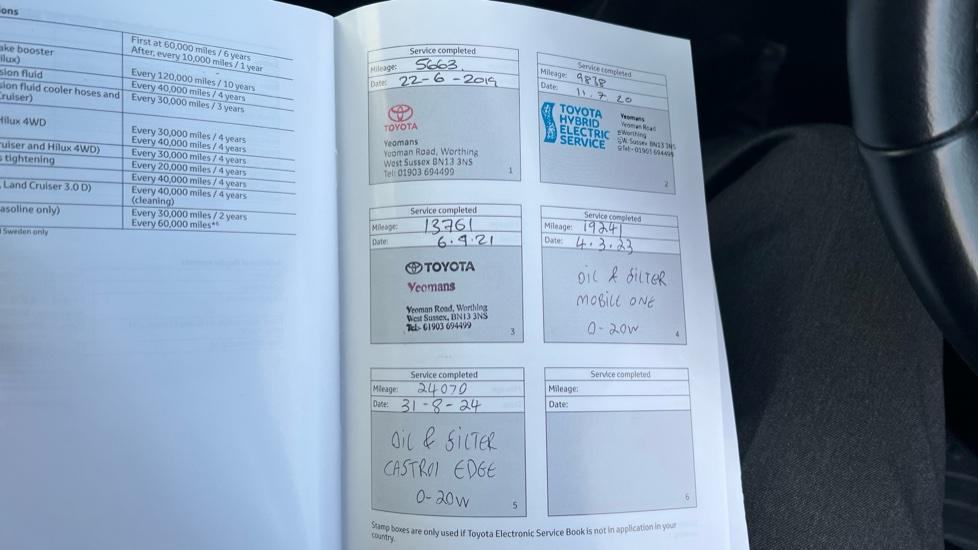 ons
First at 60,000 miles / 6 years
After, every 10,000 miles / 1 year
ake booster
ilux)
Every 120,000 miles / 10 years
sion fluid
Every 40,000 miles / 4 years
sion fluid cooler hoses and
Every 30,000 miles / 3 years
ruiser)
Hilux 4WD
Every 30,000 miles / 4 years
Every 40,000 miles / 4 years
ruiser and Hilux 4WD)
Every 30,000 miles / 4 years
s tightening
Every 20,000 miles / 4 years
Every 40,000 miles / 4 years
, Land Cruiser 3.0 D)
Every 40,000 miles / 4 years
(cleaning)
asoline only)
Every 30,000 miles / 2 years
Every 60,000 miles*6
Sweden only
Service completed
Mileage: 5663
Date: 22-6-2019
TOYOTA
Yeomans
Yeoman Road, Worthing
West Sussex BN13 3NS
Tel: 01903 694499
1
Service completed
Mileage: 9838
Date: 11.7.20
TOYOTA
HYBRID
ELECTRIC
SERVICE
Yeomans
Yeoman Road
Worthing
W. Sussex BN13 3NS
Tel: 01903 694499
2
Service completed
Mileage: 13761
Date: 6.9.21
TOYOTA
Yeomans
Yeoman Road, Worthing
West Sussex, BN13 3NS
Tel: 01903 694499
3
Service completed
Mileage: 19241
Date: 4.3.23
OIL & FILTER
MOBILE ONE
0-20W
4
Service completed
Mileage: 24070
Date: 31-8-24
OIL & FILTER
CASTROl EDGE
0-20W
5
Service completed
Mileage:
Date:
6
Stamp boxes are only used if Toyota Electronic Service Book is not in application in your
country.